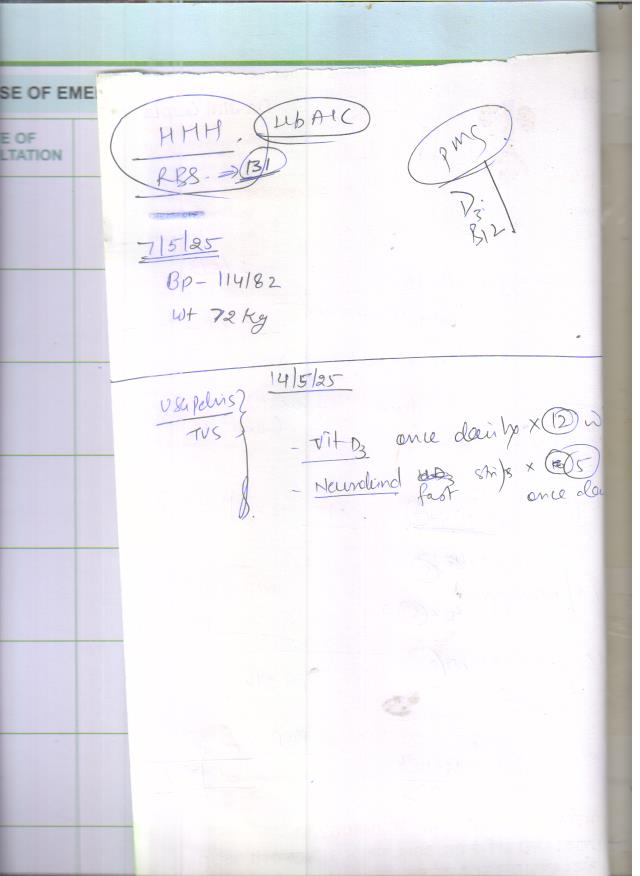 SE OF EME
E OF
LTATION
HMH. HbA1C
RBS. => 131
PMS
D3.
B12
7/5/25
Bp - 114/82
Wt 72 Kg
14/5/25
USG Pelvis
TVS
- Vit D3 once daily x 12 w
- Neurokind fast strips x 5
once da